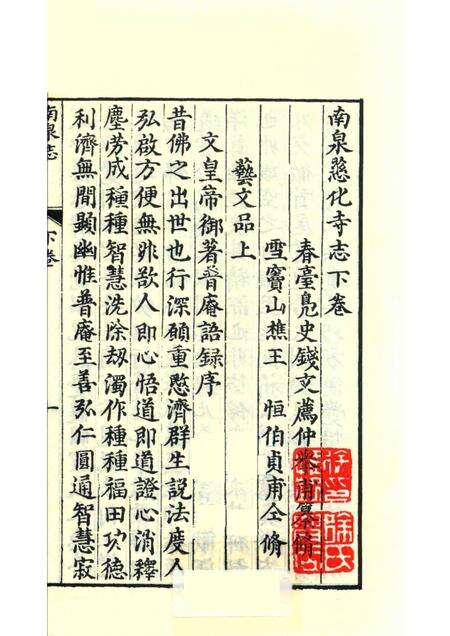 南泉慈化寺志下卷
春臺凫史錢文薦仲舉甫纂脩
雪竇山樵王　恒伯貞甫仝脩
藝文品上
文皇帝御著普庵語録序
昔佛之出世也行深願重愍濟群生説法度人
弘啟方便無非欲人即心悟道即道證心消釋
塵劳成種種智慧洗除劫濁作種種福田功德
利濟無間顯幽惟普庵至善弘仁圓通智慧寂
南泉志
下卷
一